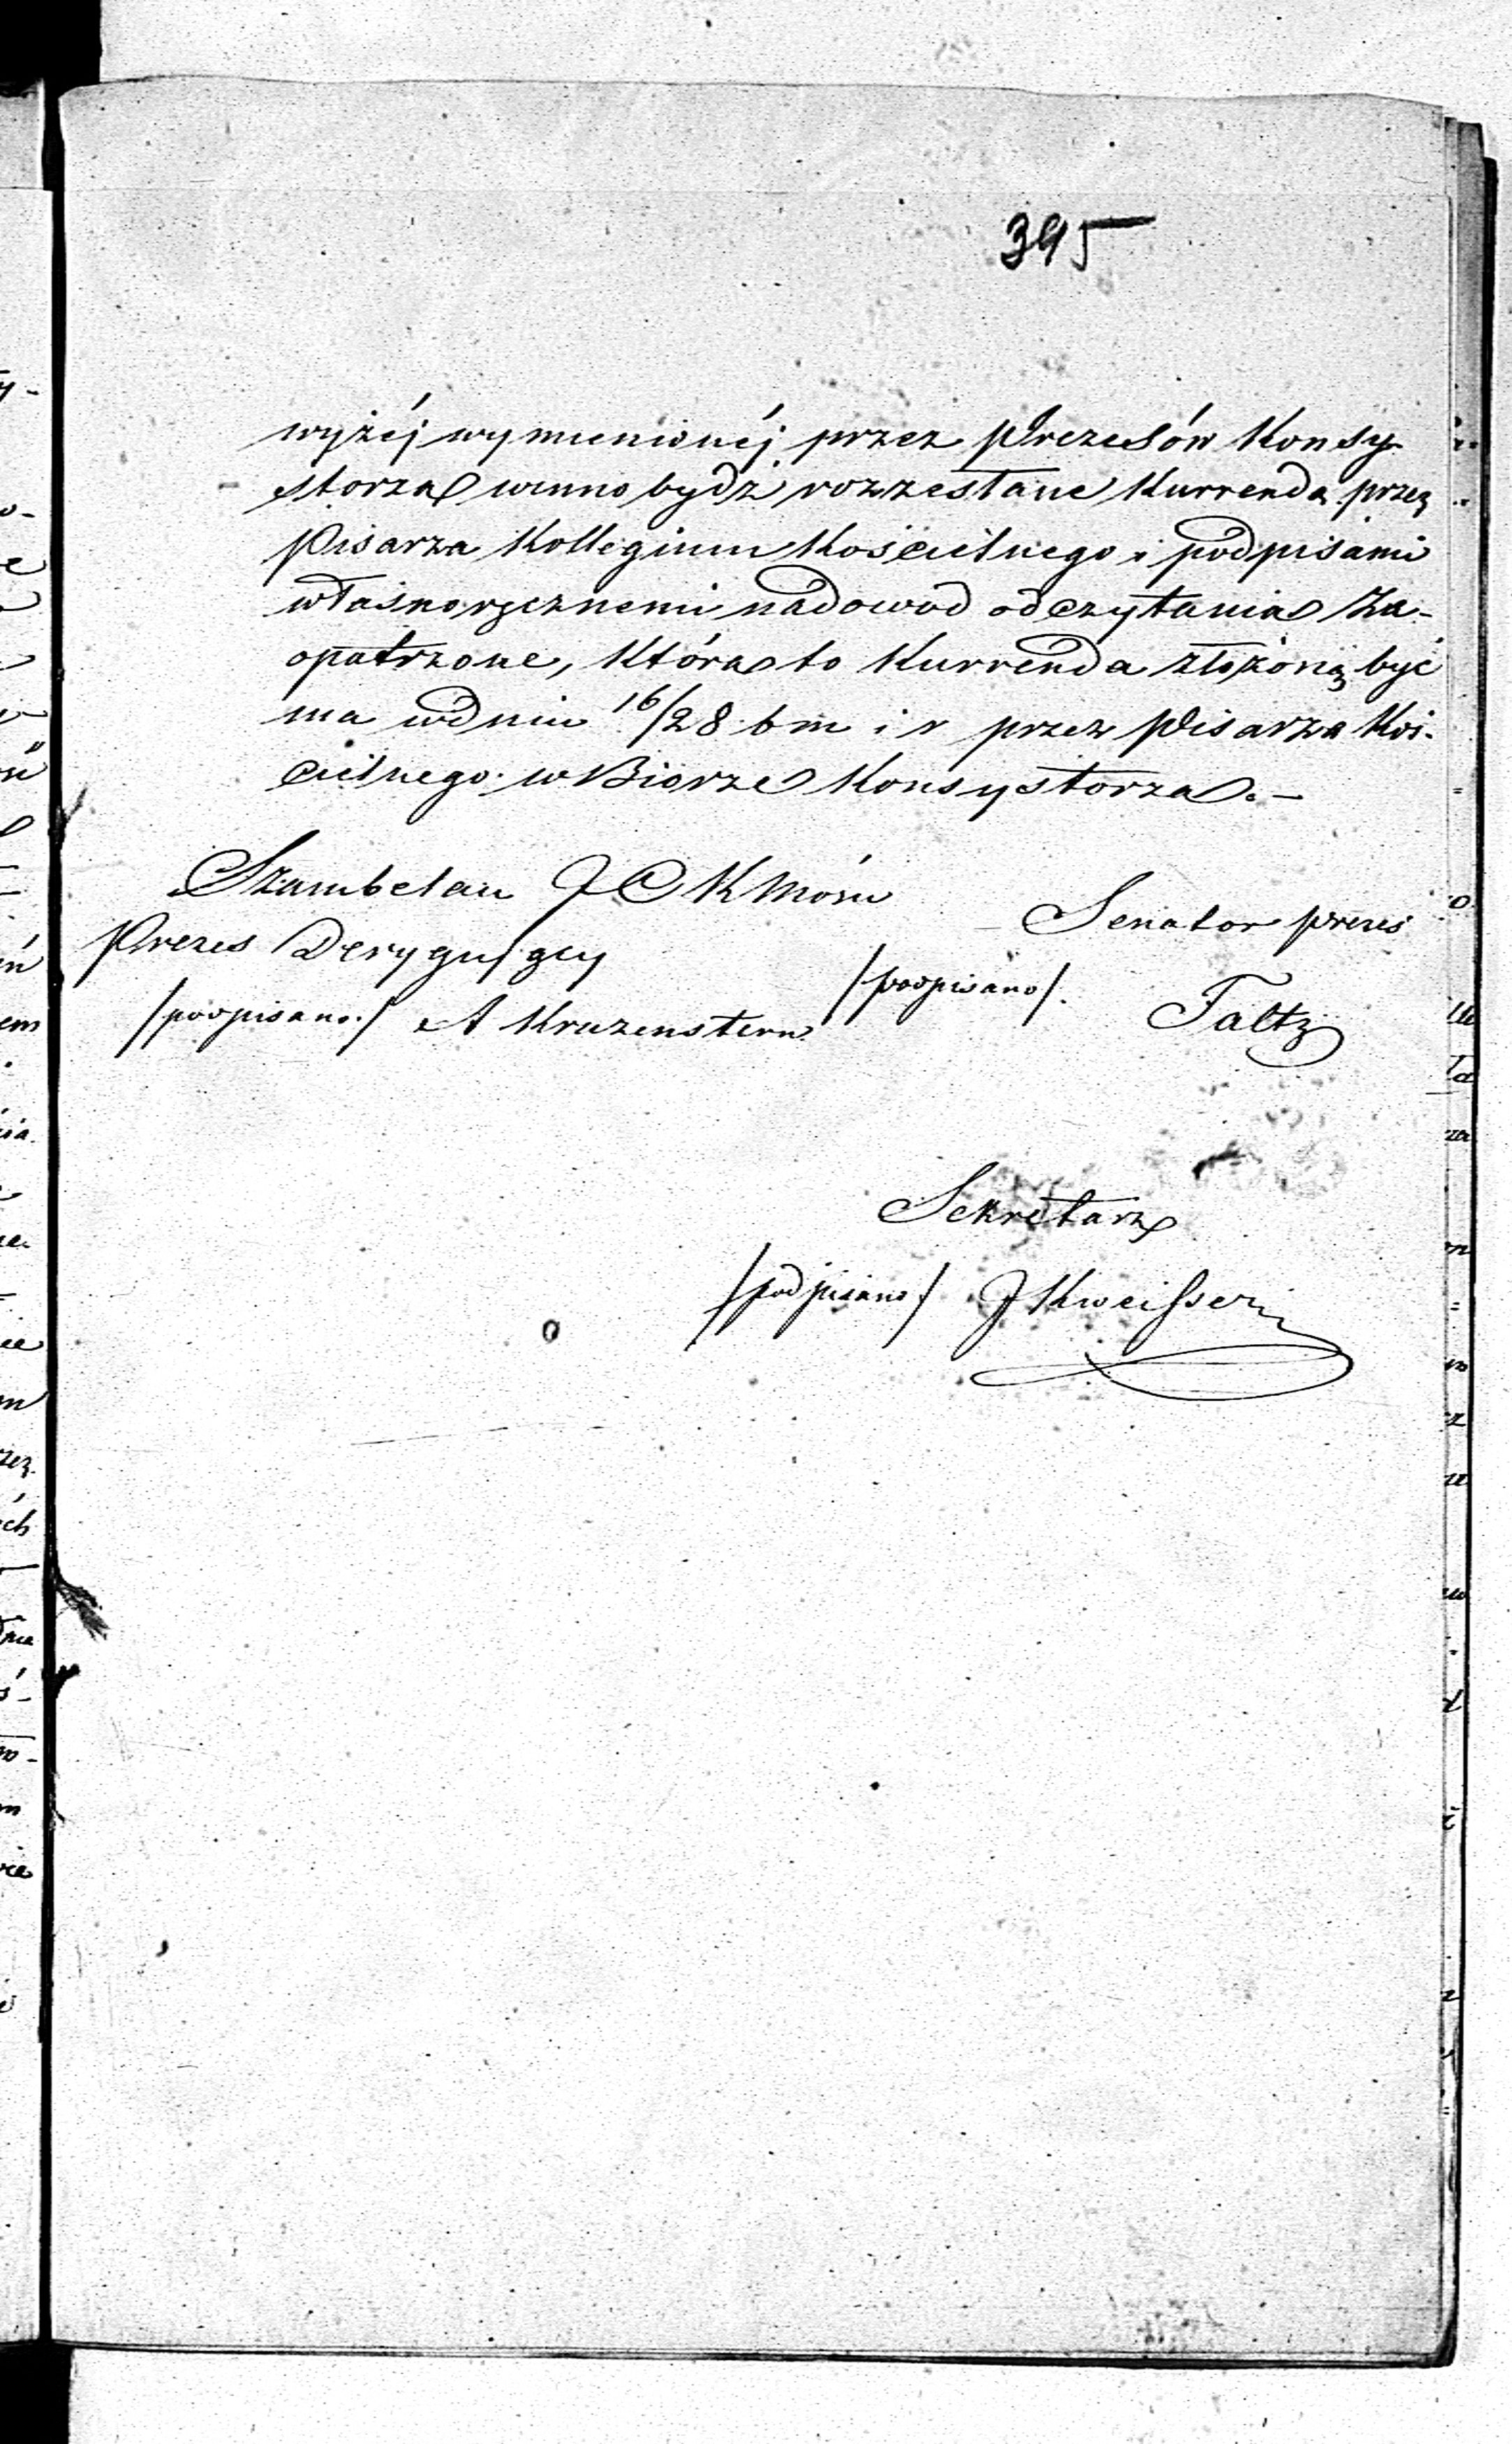 395
wyżéj wymienionéj przez Prezesów Konsy-
storza winno bydź rozzesłane Kurrendą przez
Pisarza Kollegium Kościelnego i podpisami
własnoręcznemi nadowod odczytania Za-
opatrzone, która to Kurrenda złożoną być
ma wdniu 16/28 b m i r przez Pisarza Koś-
cielnego w Biorze Konsystorza.-
Szambelan J C K Mości
Prezes Deryguiący
/podpisano./ A Kruzenstern
Senator prezes
/podpisano/. Faltz
Sekretarz
/podpisano/ J Kweisser